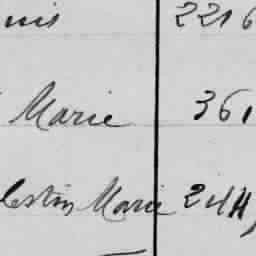 nis 2216
Marie 361
lestin Marie 2414